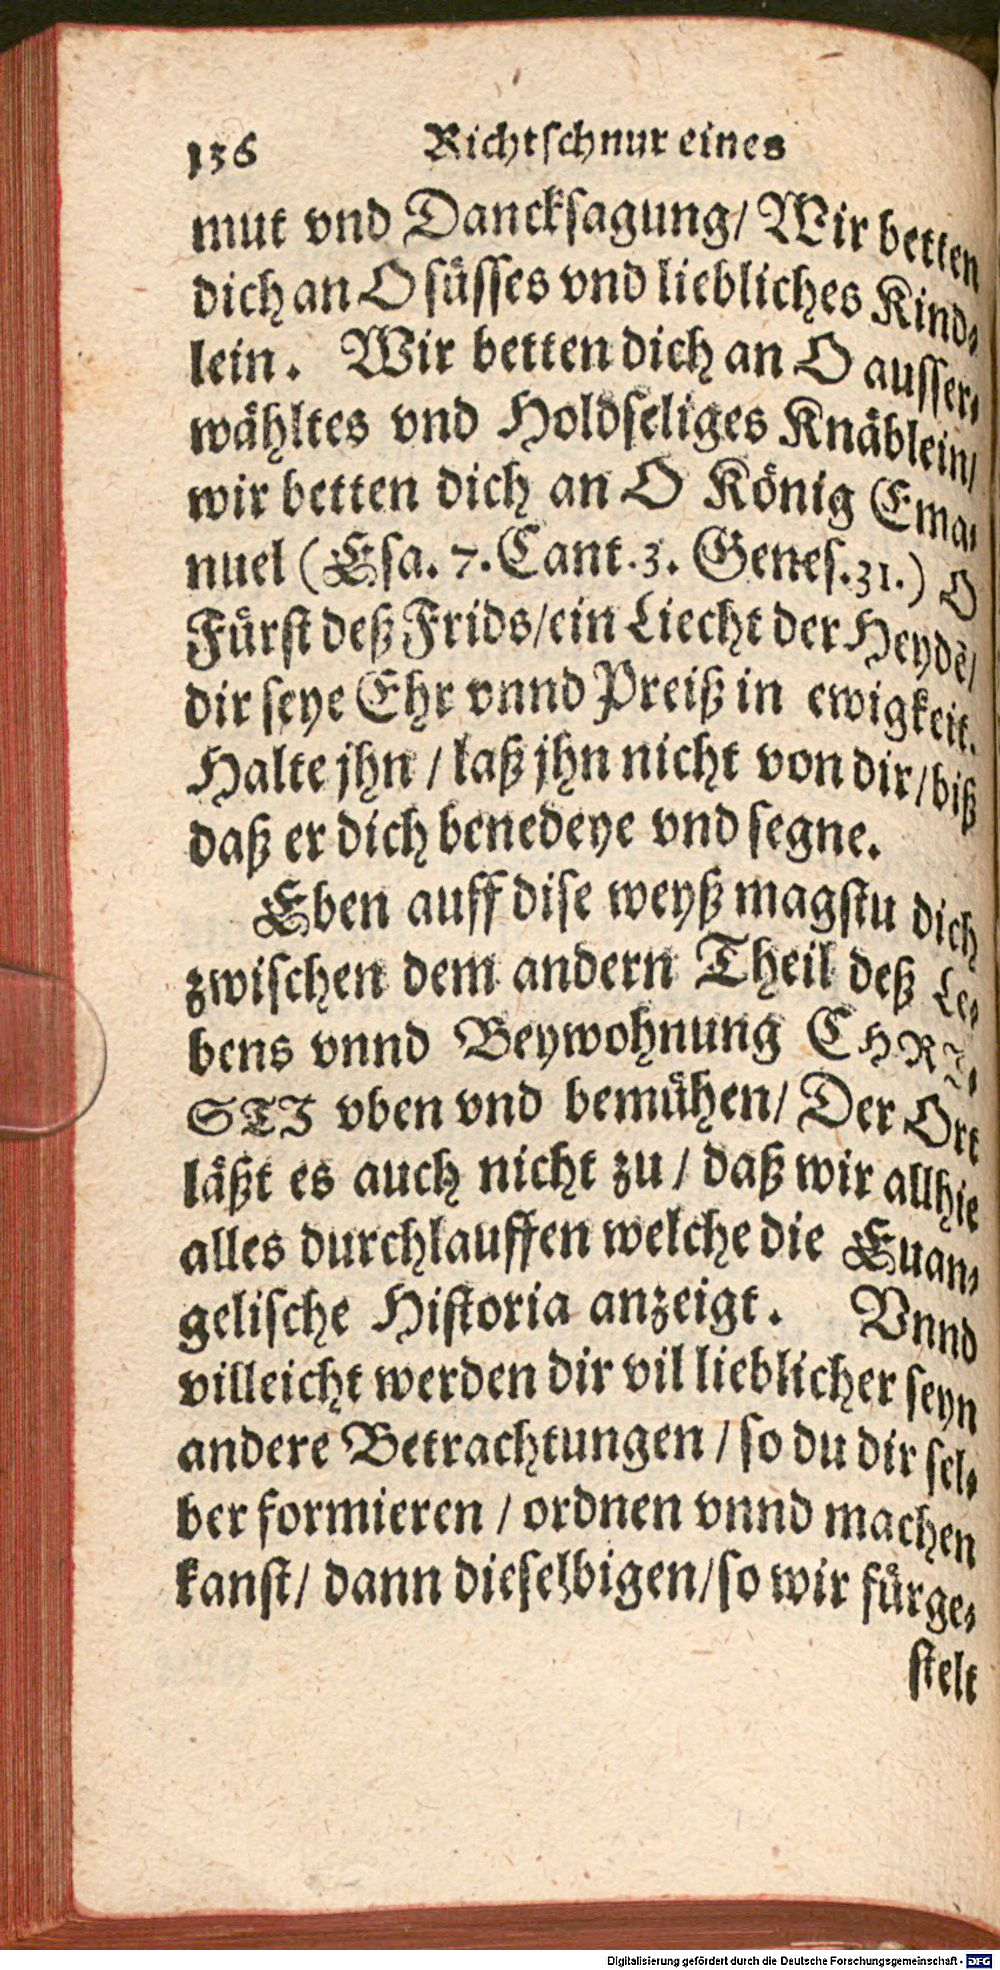 136 Richtschnur eines
mut vnd Dancksagung/ Wir betten
dich an O süsses vnd liebliches Kind⸗
lein. Wir betten dich an O ausser⸗
wähltes vnd Holdseliges Knäblein/
wir betten dich an O König Ema⸗
nuel (Esa. 7. Cant. 3. Genes. 31.) O
Fürst deß Frids/ ein Liecht der Heydẽ/
dir seye Ehr vnnd Preiß in ewigkeit.
Halte jhn / laß jhn nicht von dir/ biß
daß er dich benedeye vnd segne.
Eben auff dise weyß magstu dich
zwischen dem andern Theil deß Le⸗
bens vnnd Beywohnung CHRI⸗
STI vben vnd bemühen/ Der Ort
läßt es auch nicht zu / daß wir allhie
alles durchlauffen welche die Euan⸗
gelische Historia anzeigt. Vnnd
villeicht werden dir vil lieblicher seyn
andere Betrachtungen / so du dir sel⸗
ber formieren / ordnen vnnd machen
kanst/ dann dieselbigen/ so wir fürge⸗
stelt
Digitalisierung gefördert durch die Deutsche Forschungsgemeinschaft - DFG